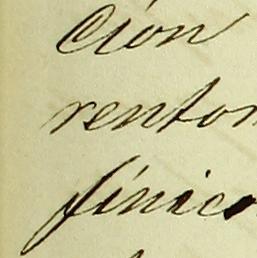 cion
renton
finico